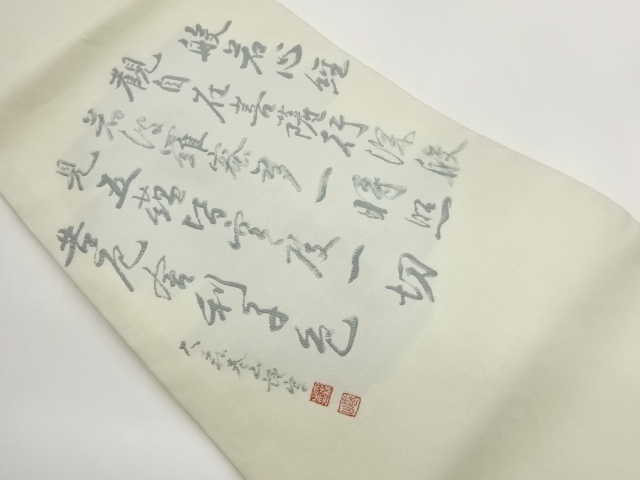 般若心經
觀自在菩薩行深般
若波羅蜜多時照
見五蘊皆空度一切
苦厄舎利子色